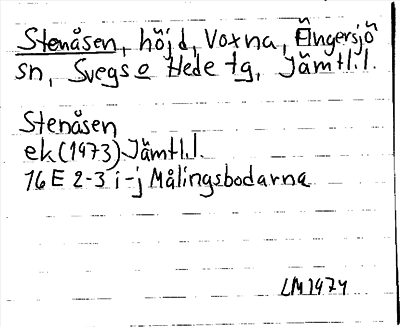 Stenåsen, höjd, Voxna, Ängersjö
sn, Svegs o Hede tg, Jämtl.l.
Stenåsen
ek (1973) Jämtl.l.
16E 2-3 i-j Målingsbodarna
LM 1974